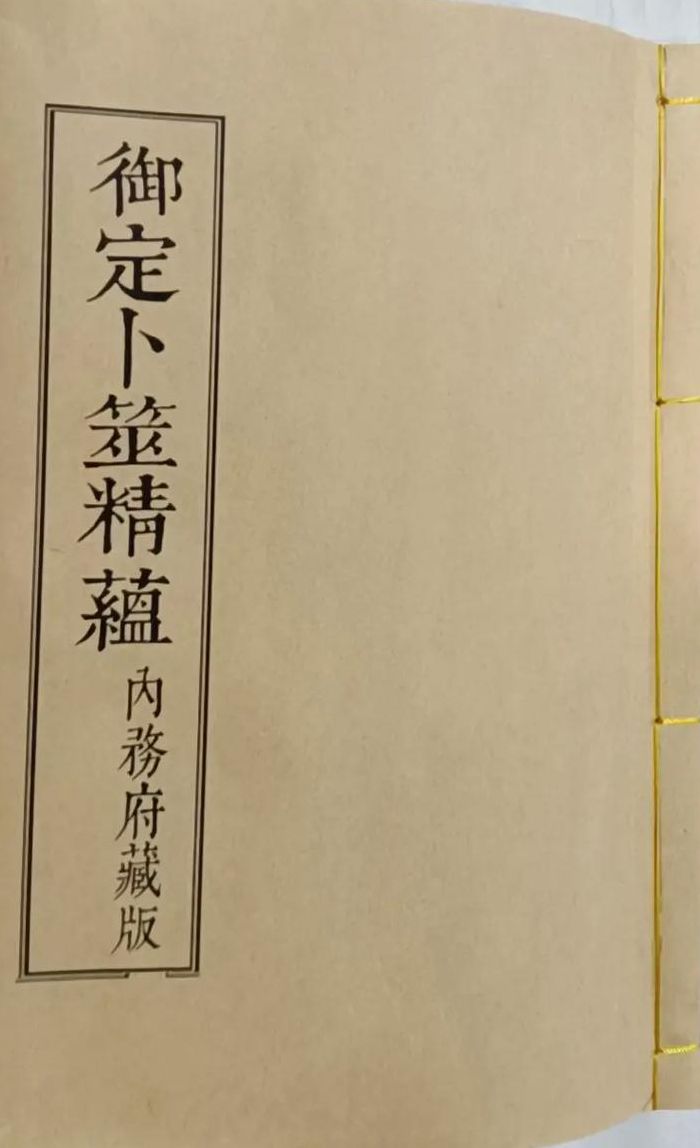 御定卜筮精蘊
內務府藏版